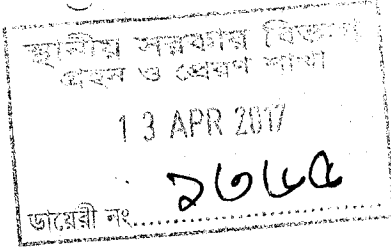 স্থানীয় সরকার বিভাগ
গ্রহন ও প্রেরণ শাখা
13 APR 2017
ডায়েরী নং..............